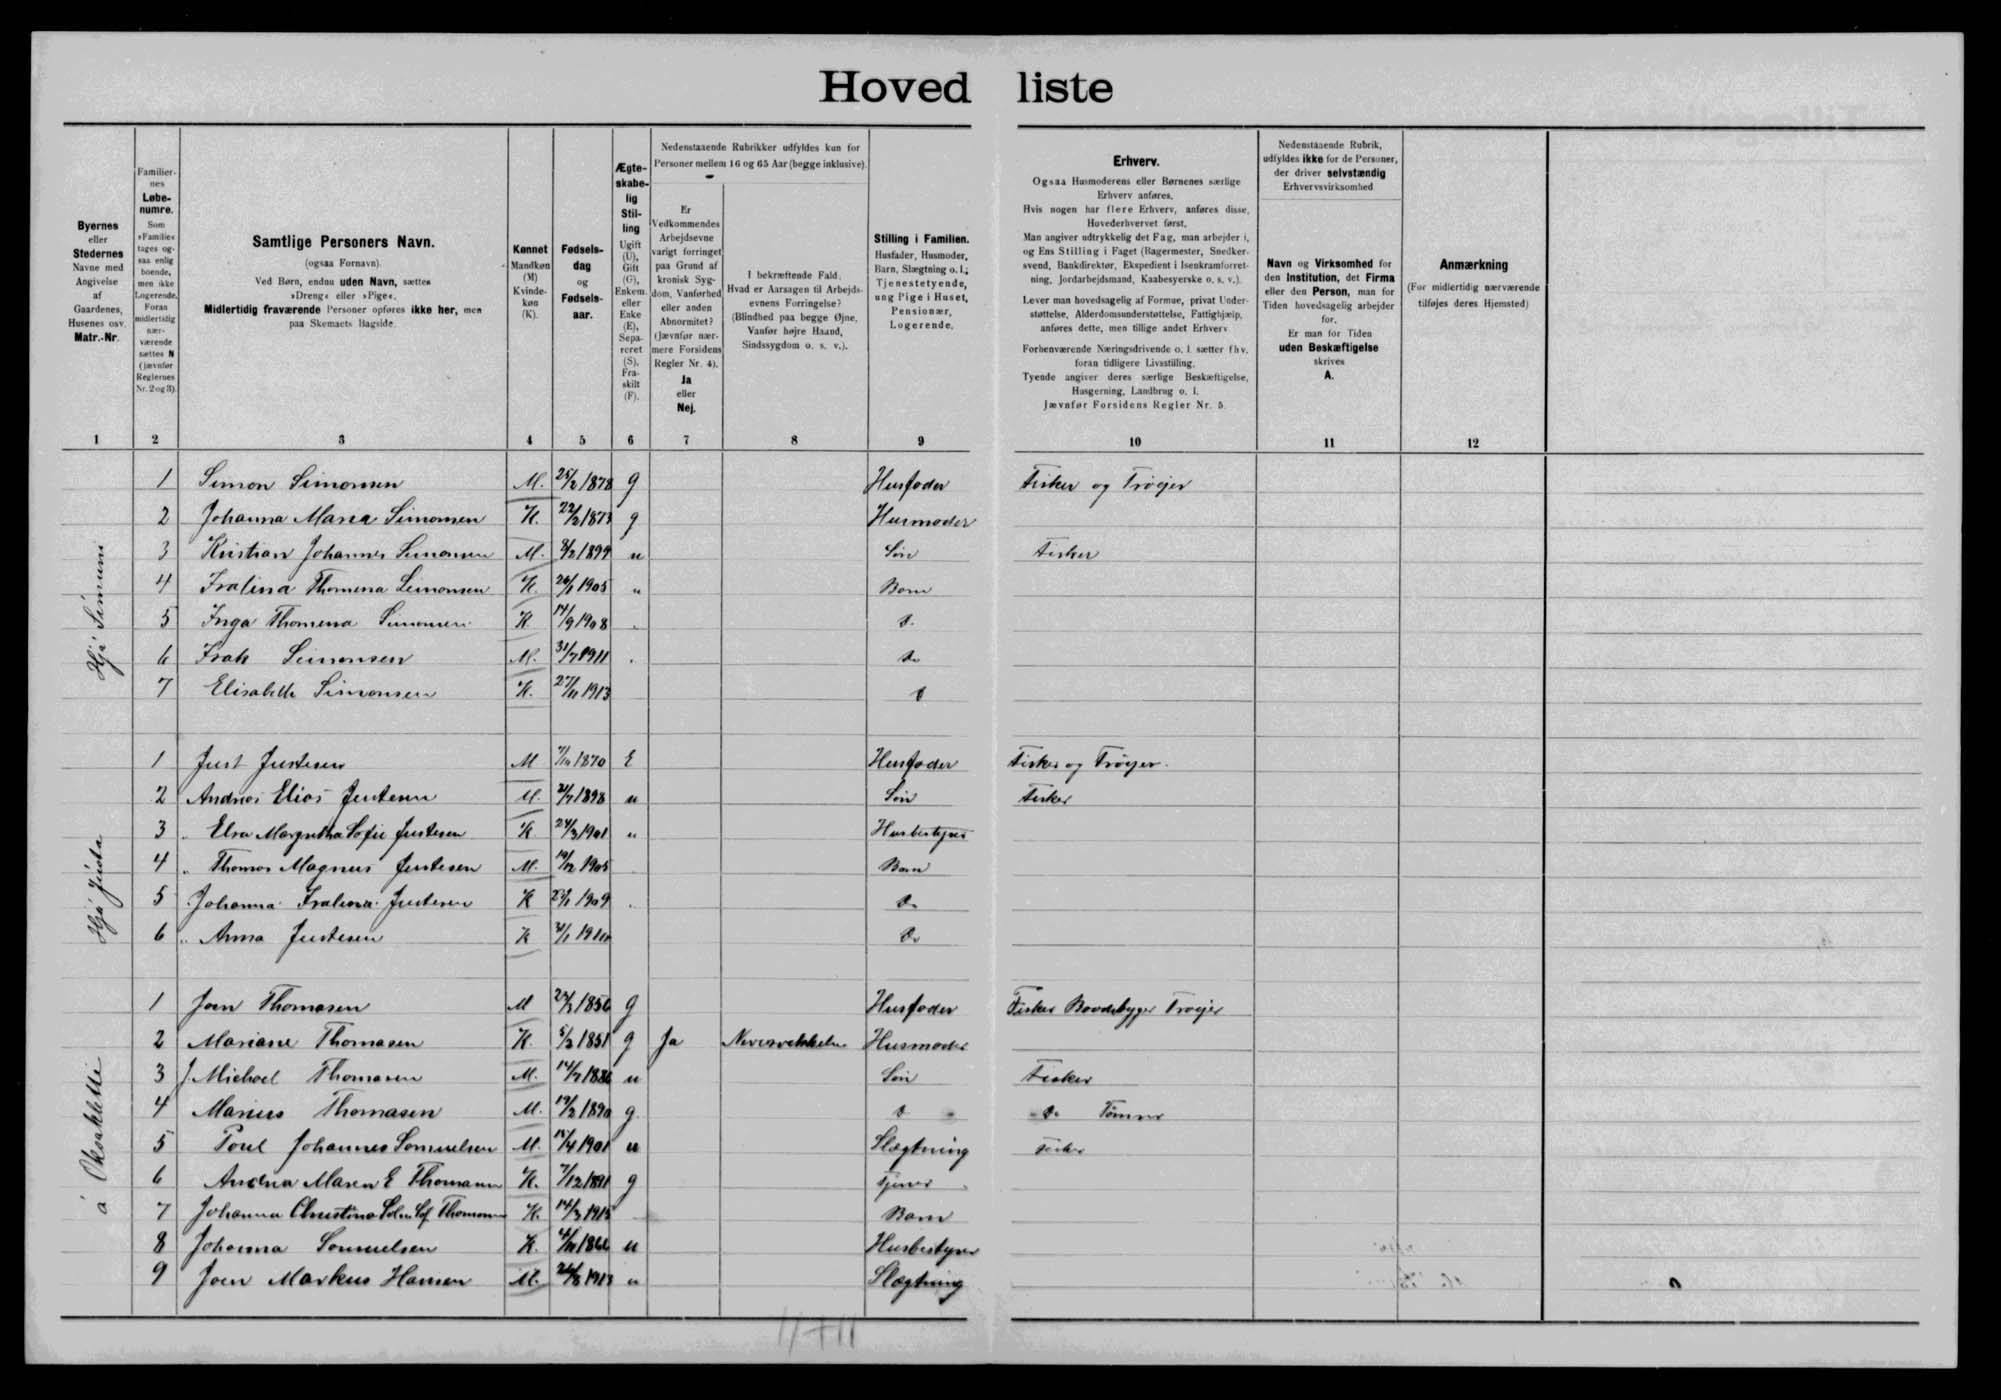 Hovedliste
Byernes
eller
Stedernes
Navne med
Angivelse
af
Gaardenes,
Husenes osv.
Matr.-Nr.
Familier-
nes
Løbe-
numre.
Som
»Familie«
tages og-
saa enlig
boende,
men ikke
Logerende.
Foran
midlertidig
nær-
værende
sættes N
(jævnfør
Reglernes
Nr. 2 og 3).
Samtlige Personers Navn.
(ogsaa Fornavn).
Ved Børn, endnu uden Navn, sættes
»Dreng« eller »Pige«.
Midlertidig fraværende Personer opføres ikke her, men
paa Skemaets Bagside.
Kønnet
Mandkøn
(M)
Kvinde-
køn
(K).
Fødsels-
dag
og
Fødsels-
aar.
Ægte-
skabe-
lig
Stil-
ling
Ugift
(U),
Gift
(G),
Enkem.
eller
Enke
(E),
Sepa-
reret
(S),
Fra-
skilt
(F).
Nedenstaaende Rubrikker udfyldes kun for
Personer mellem 16 og 65 Aar (begge inklusive).
Er
Vedkommendes
Arbejdsevne
varigt forringet
paa Grund af
kronisk Syg-
dom, Vanførhed
eller anden
Abnormitet?
(Jævnfør nær-
mere Forsidens
Regler Nr. 4).
Ja
eller
Nej.
I bekræftende Fald:
Hvad er Aarsagen til Arbejds-
evnens Forringelse?
(Blindhed paa begge Øjne,
Vanfør højre Haand,
Sindssygdom o. s. v.).
Stilling i Familien.
Husfader, Husmoder,
Barn, Slægtning o. l.;
Tjenestetyende,
ung Pige i Huset,
Pensionær,
Logerende.
Erhverv.
Ogsaa Husmoderens eller Børnenes særlige
Erhverv anføres.
Hvis nogen har flere Erhverv, anføres disse,
Hovederhvervet først.
Man angiver udtrykkelig det Fag, man arbejder i,
og Ens Stilling i Faget (Bagermester, Snedker-
svend, Bankdirektør, Ekspedient i Isenkramforret-
ning, Jordarbejdsmand, Kaabesyerske o. s. v.).
Lever man hovedsagelig af Formue, privat Under-
støttelse, Alderdomsunderstøttelse, Fattighjælp,
anføres dette, men tillige andet Erhverv
Forhenværende Næringsdrivende o. l. sætter fhv.
foran tidligere Livsstilling.
Tyende angiver deres særlige Beskæftigelse,
Husgerning, Landbrug o. l.
Jævnfør Forsidens Regler Nr. 5.
Nedenstaaende Rubrik,
udfyldes ikke for de Personer,
der driver selvstændig
Erhvervsvirksomhed
Navn og Virksomhed for
den Institution, det Firma
eller den Person, man for
Tiden hovedsagelig arbejder
for.
Er man for Tiden
uden Beskæftigelse
skrives
A.
Anmærkning
(For midlertidig nærværende
tilføjes deres Hjemsted)
1 2 3 4 5 6 7 8 9 10 11 12
Hjá Símuni
1 Simon Simonsen M. 25/2 1878 g Husfader Fisker og Trøjer
2 Johanna Maria Simonsen K. 22/2 1873 g Husmoder
3 Kristian Johannes Simonsen M. 1899 u Søn Fisker
4 Fralina Thomena Simonsen K. 26/1 1905 " Barn
5 Inga Thomena Simonsen K. 14/9 1908 D.
6 Isak Simonsen M. 31/7 1911 Do
7 Elisabeth Simonsen K. 27/11 1913 D
Hjá Justa
1 Just Justesen M 1870 E Husfader Fisker og Trøjer.
2 Andreas Elias Justesen M. 1898 u Søn Fisker
3 " Elra Margretha Sofie Justesen K 24/3 1901 " Husbestyrer
4 " Thomas Magnus Justesen M. 19/12 1905 Barn
5 Johanna Fralina Justesen K 1909 Do
6 " Anna Justesen K 1910 Do
á Oksakletti
1 Joen Thomasen M 1856 g Husfader Fisker Baadebygger Trøjer
2 Mariane Thomasen K. 1851 g Ja Husmoder
3 J. Michael Thomasen M. 14/7 1886 u Søn Fisker
4 Marius Thomasen M. 19/2 1890 g. D Do Tømrer
5 Poul Johannes Samuelsen M. 1901 u Slægtning Fisker
6 Andrea Maren E Thomasen K. 7/12 1891 g Tjener
7 Johanna Christina Thomasen K. 14/3 1915 Barn
8 Johanna Samuelsen K. 1866 u Husbestyrer
9 Joen Markus Hansen M. 1913 u Slægtning
11+11